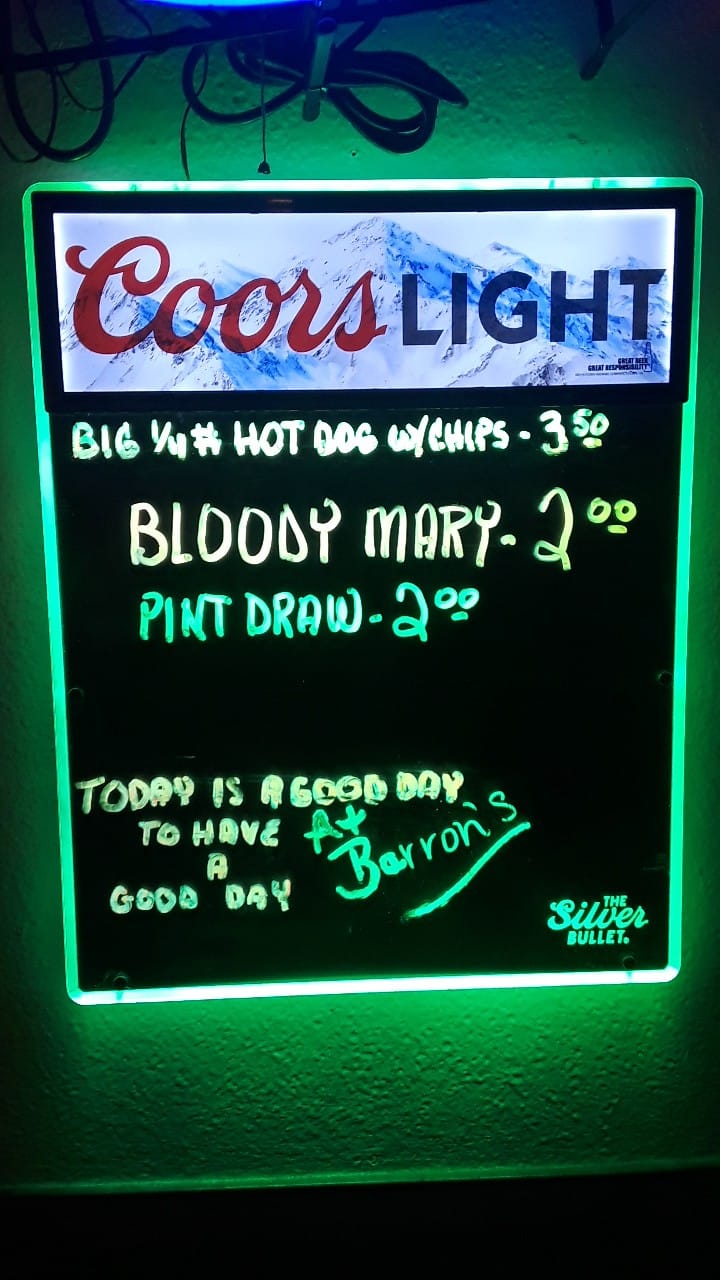 Coors LIGHT
GREAT BEER
GREAT RESPONSIBILITY
BIG 1/4# HOT DOG W/CHIPS - 3 50
BLOODY MARY - 2 00
PINT DRAW - 2 00
TODAY IS A GOOD DAY
TO HAVE
A
GOOD DAY
At
Barron's
THE
Silver
BULLET.